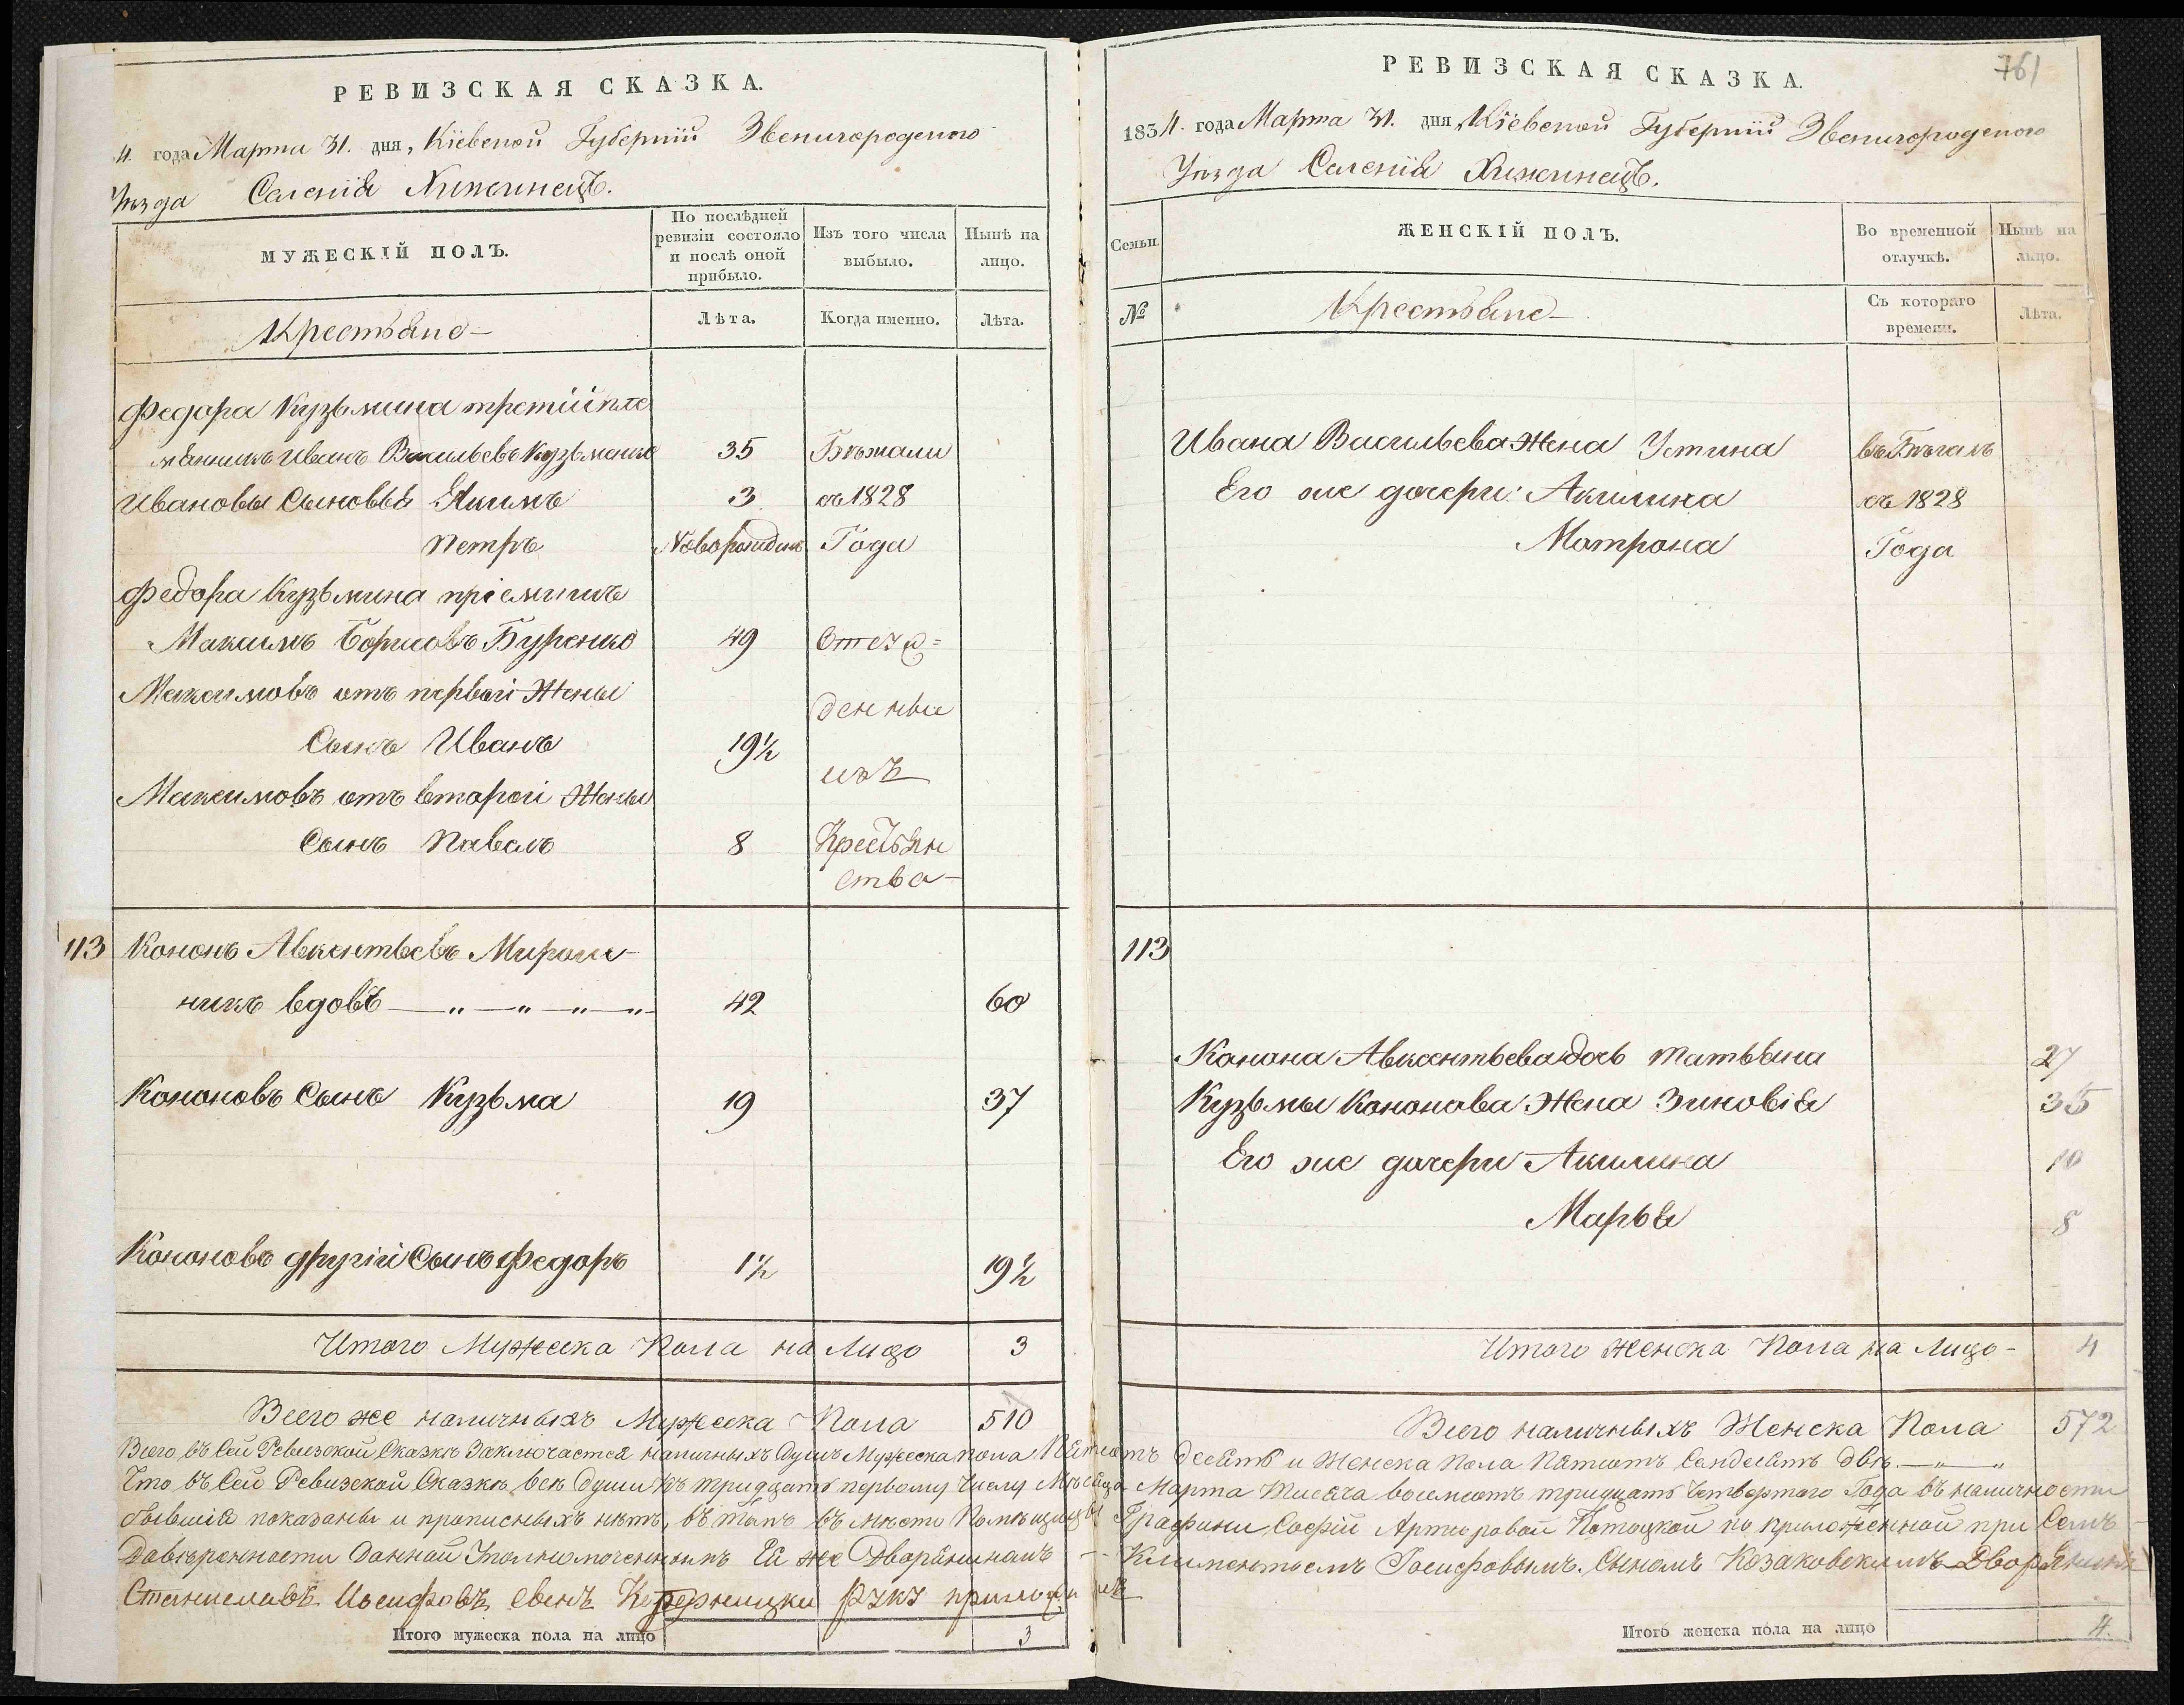 РЕВИЗСКАЯ СКАЗКА.
4. года Марта 31. дня, Кіевской Губерніи Звенигородского
Уѣзда Селенія Хижинецъ.
МУЖЕСКІЙ ПОЛЪ.
По послѣдней ревизіи состояло и послѣ оной прибыло.
Изъ того числа выбыло.
Нынѣ на лицо.
Крестьяне
Лѣта.
Когда именно.
Лѣта.
Федора Кузьмина третій пле
мянникъ Иванъ Васильевъ Кузьменко 35 Бѣжали
Ивановы Сыновья Якимъ 3 съ 1828
Петръ Новорожден Года
Федора Кузьмина пріемышъ
Максимъ Борисовъ Буренко 49
Максимовъ отъ первой Жены
денные
Сынъ Иванъ 19½
изъ
Максимовъ отъ второй Жены
Сынъ Павелъ 8 Крестьян
ства
113 Кононъ Авксентьевъ Мирош-
никъ вдовъ 42 60
Кононовъ Сынъ Кузьма 19 37
Кононовъ другій Сынъ Федоръ 1½ 19½
Итого Мужеска Пола на Лицо 3
Всего же наличныхъ Мужеска Пола 510
РЕВИЗСКАЯ СКАЗКА.
761
1834. года Марта 31. дня, Кіевской Губерніи Звенигородского
Уѣзда Селенія Хижинецъ.
Семьи.
ЖЕНСКІЙ ПОЛЪ.
Во временной отлучкѣ.
Нынѣ на лицо.
№
Крестьяне
Съ котораго времени.
Лѣта.
Ивана Васильева Жена Устина въ Бѣгахъ
Его же дочери: Акилина съ 1828
Матрона Года
113
Конона Авксентьева дочь Татьяна 27
Кузьмы Кононова Жена Зиновія 35
Его же дочери Акилина 10
Марья 8
Итого Женска Пола на Лицо 4
Всего наличныхъ Женска Пола 572
Всего въ Сей Ревизской Сказкѣ Заключается наличныхъ Душъ Мужеска пола Пятьсотъ десять и Женска Пола Пятьсотъ Семдесятъ двѣ.
Что въ Сей Ревизской Сказкѣ всѣ Души къ тридцать первому Числу Мѣсяца Марта Тысяча восемсотъ тридцать Четвертого Года въ наличности
бывшія показаны и прописныхъ нѣтъ, въ томъ въ мѣсто Помѣщицы Графини Софіи Потоцкой по приложенной при Семъ
Довѣренности Данной Уполномоченнымъ Ей же Дворяниномъ Климентьемъ Іосифовымъ Сыномъ Козаковскимъ Дворянинъ
Станиславъ Иосифовъ сынъ руку приложилъ
Итого мужеска пола на лицо 3
Итого женска пола на лицо 4.